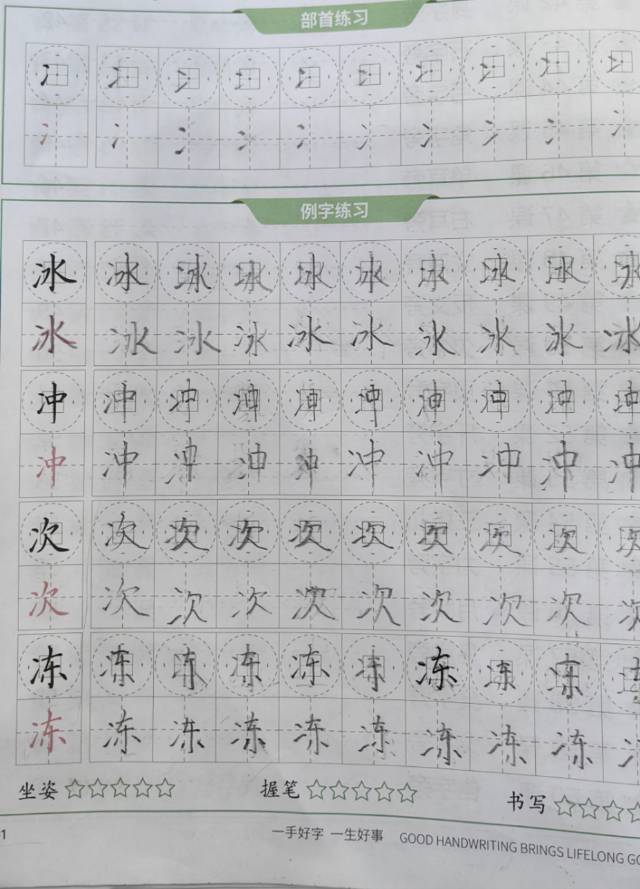 部首练习
冫 冫 冫 冫 冫 冫 冫 冫 冫 冫
冫 冫 冫 冫 冫 冫 冫 冫 冫 冫
例字练习
冰 冰 冰 冰 冰 冰 冰 冰 冰 冰
冰 冰 冰 冰 冰 冰 冰 冰 冰 冰
冲 冲 冲 冲 冲 冲 冲 冲 冲 冲
冲 冲 冲 冲 冲 冲 冲 冲 冲 冲
次 次 次 次 次 次 次 次 次 次
次 次 次 次 次 次 次 次 次 次
冻 冻 冻 冻 冻 冻 冻 冻 冻
冻 冻 冻 冻 冻 冻 冻 冻 冻
坐姿 ☆☆☆☆☆ 握笔 ☆☆☆☆☆ 书写 ☆☆☆☆
1 一手好字 一生好事 GOOD HANDWRITING BRINGS LIFELONG